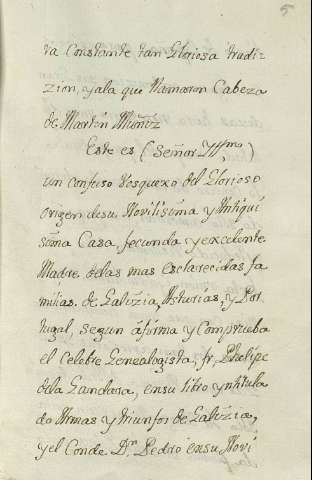 5
ra Constante tan Gloriosa tradi-
zion, y ala que llamaron Cabeza
de Martin Muñiz
Este es (Señor Yllmo)
un confuso Vosquexo del Glorioso
origen desu Novilisima y Antiqui
sima Casa, fecunda y excelente
Madre, delas mas esclarecidas fa
milias. de Galizia, Asturias, y Por
tugal, segun afirma y Comprueba
el Celebre Genealogista, fr. Phelipe
dela Gandara, ensu libro yntitula
do Armas y triunfos de Galizia,
y el Conde Dn. Pedro ensu Novi